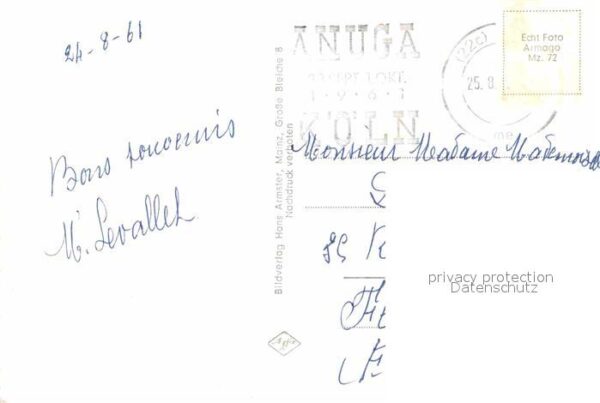 24-8-61
Bons souvenirs
M. Levallet
Bildverlag Hans Armster, Mainz, Große Bleiche 8
Nachdruck verboten
ANUGA
23.SEPT. 1.OKT.
1961
KÖLN
(22c)
25.8.
Echt Foto
Armago
Mz. 72
Monsieur Madame Mademoiselle
privacy protection
Datenschutz